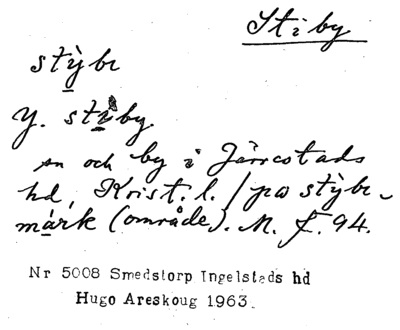 Stiby
stỳbı
y. stiby.
sn och by i Järrestads
hd, Krist. l. / på stỳbı-
márk (område). M. f. 94.
Nr 5008 Smedstorp Ingelstads hd
Hugo Areskoug 1963.